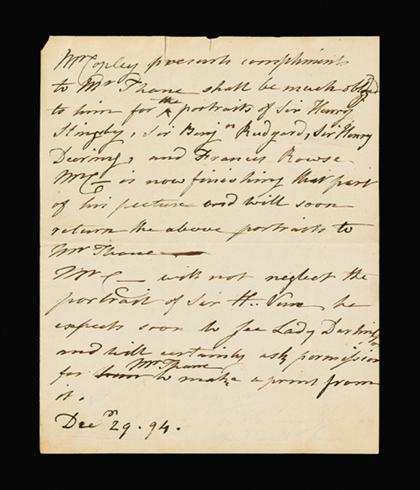 Mr Copley presents compliments
to Mr Thane shall be much oblgd
to him for the portraits of Sir Henry
Slingsby, Sir Benjn Rudyard, Sir Henry
Deering, and Francis Rowse
Mr C— is now finishing that part
of his picture and will soon
return the above portraits to
Mr Thane —
Mr C— will not neglect the
portrait of Sir H.. Vane he
expects soon to see Lady Darlington
and will certainly ask permission
for Mr Thane to make a print from
it.
Decr 29. 94.